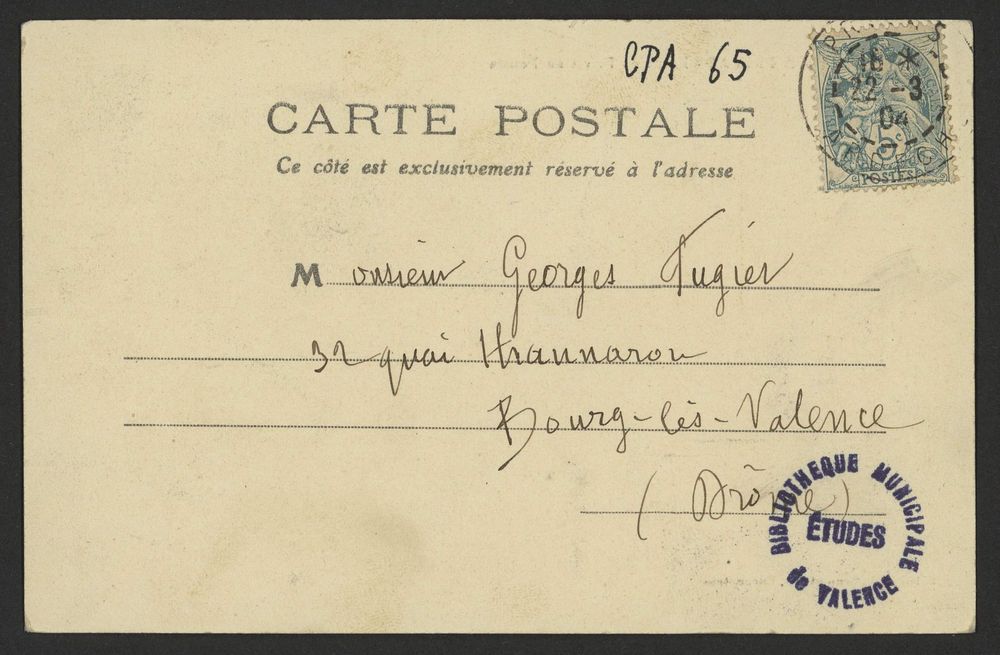 CPA 65
CARTE POSTALE
Ce côté est exclusivement réservé à l'adresse
22 -3
04
5c
POSTES
Monsieur Georges Fugier
32 quai Thannaron
Bourg-lès-Valence
(Drôme)
BIBLIOTHEQUE MUNICIPALE
ÉTUDES
de VALENCE